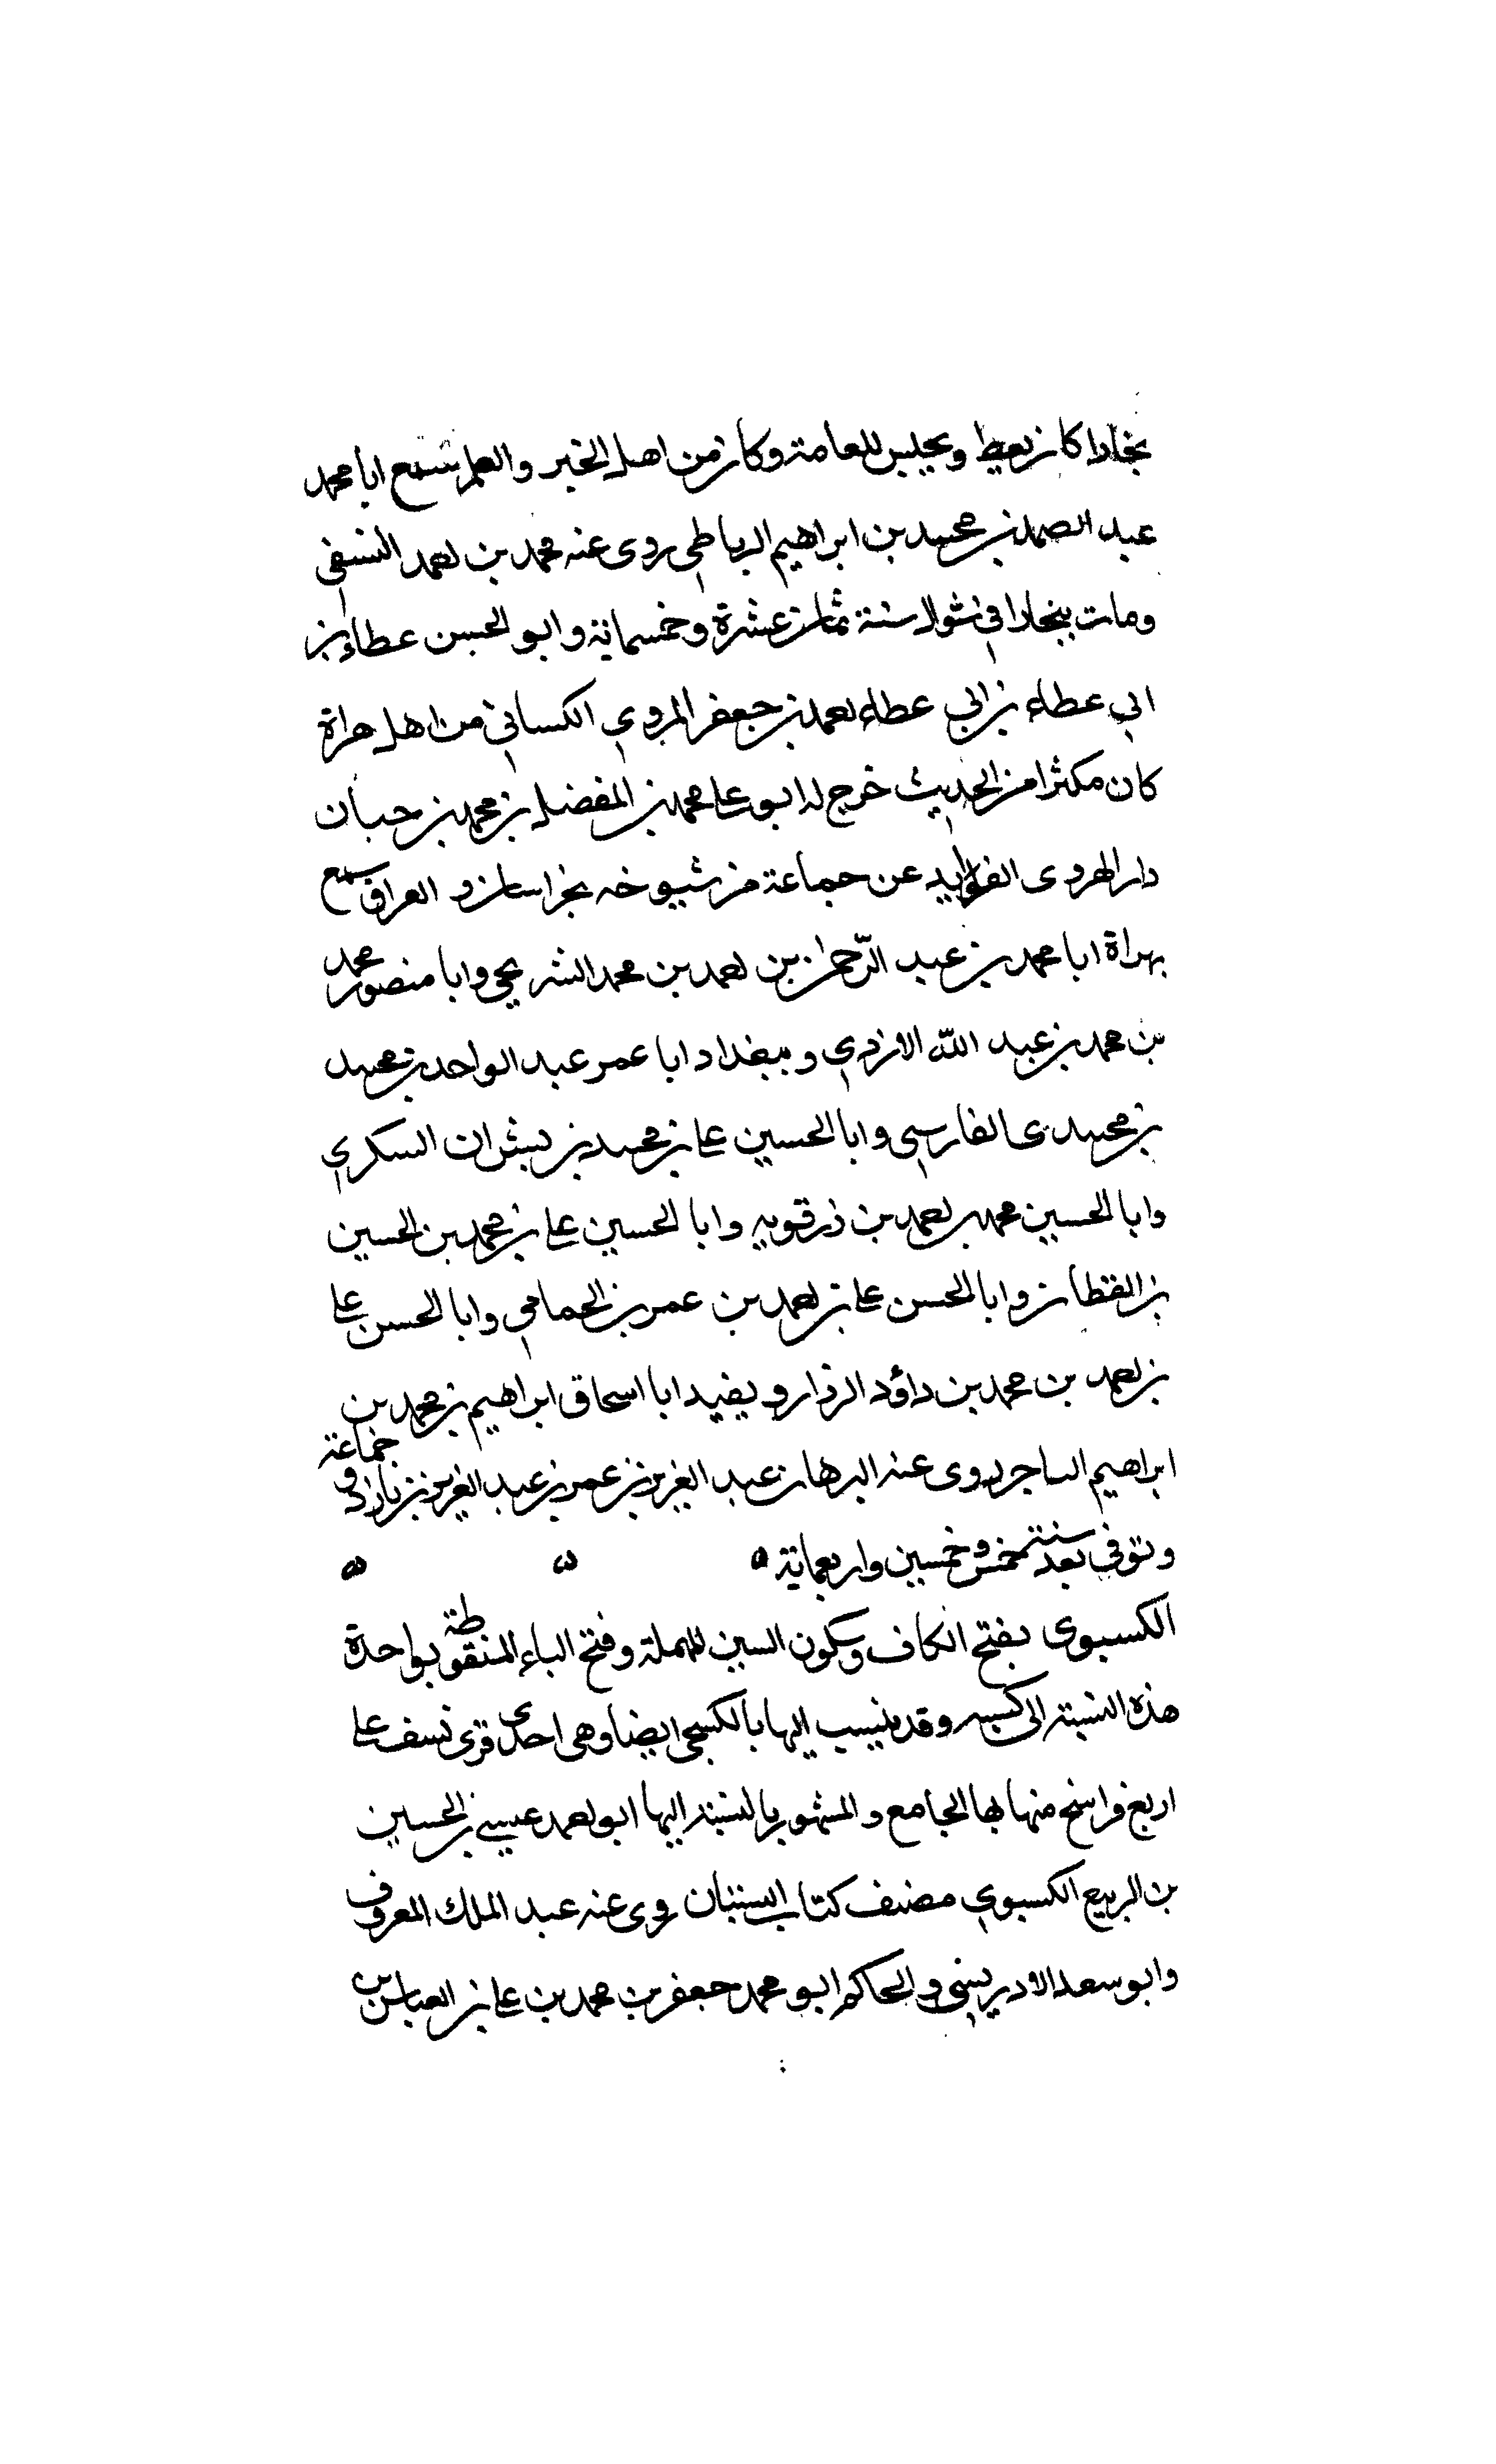 بخارا كان يعظ ويجلس للعامة وكان من اهل الخير والعلم سمع ابا محمد
عبد الصمد بن محمد بن ابراهيم الرباطي روى عنه محمد بن احمد النسفي
ومات ببخارا في شوال سنة ثمان عشرة وخمسمائة وابو الحسن عطاء بن
ابي عطاء بن ابي عطاء احمد بن جعفر الهروي الكسائي من اهل هراة
كان مكثرا من الحديث خرج له ابو علي محمد بن المفضل بن محمد بن حبان
دار الهروي الفوايد عن جماعة من شيوخه بخراسان و العراق سمع
بهراة ابا محمد بن عبد الرّحمن بن احمد بن محمد الشريحي وابا منصور محمد
بن محمد بن عبد اللّه الازدي وببغداد ابا عمر عبد الواحد بن محمد
بن محمد الفارسي وابا الحسين علي بن محمد بن بشران السكري
وابا الحسين محمد بن احمد بن زرقويه وابا الحسين علي بن محمد بن الحسين
بن القطان وابا الحسن علي بن احمد بن عمر بن الحمامي وابا الحسن علي
بن احمد بن محمد بن داؤد الرزاز ويفيد ابا اسحاق ابراهيم بن محمد بن
ابراهيم التاجر روى عنه البرهان عبد العزيز بن عمر بن عبد العزيز بن جماعة
وتوفي بعد سنة خمس وخمسين واربعمائة ه ه ه
الكسبوى بفتح الكاف وسكون السين المهملة وفتح الباء المنقوطة بواحدة
هذه النسبة الى كسبه وقد ينسب اليها بالكسبجى ايضا وهى احدى قرى نسف على
اربع فراسخ منها بها الجامع والمشهور بالنسبة اليها ابو احمد عيسى بن الحسين
بن الربيع الكسبوي مصنف كتاب البستان روى عنه عبد الملك المعروف
وابو سعد الادريسي والحاكم ابو محمد جعفر بن محمد بن علي بن العباس بن